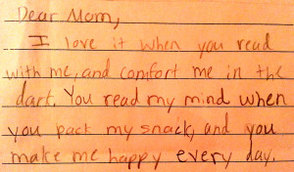 Dear Mom,
I love it when you read
with me, and comfort me in the
dark. You read my mind when
you pack my snack, and you
make me happy every day.